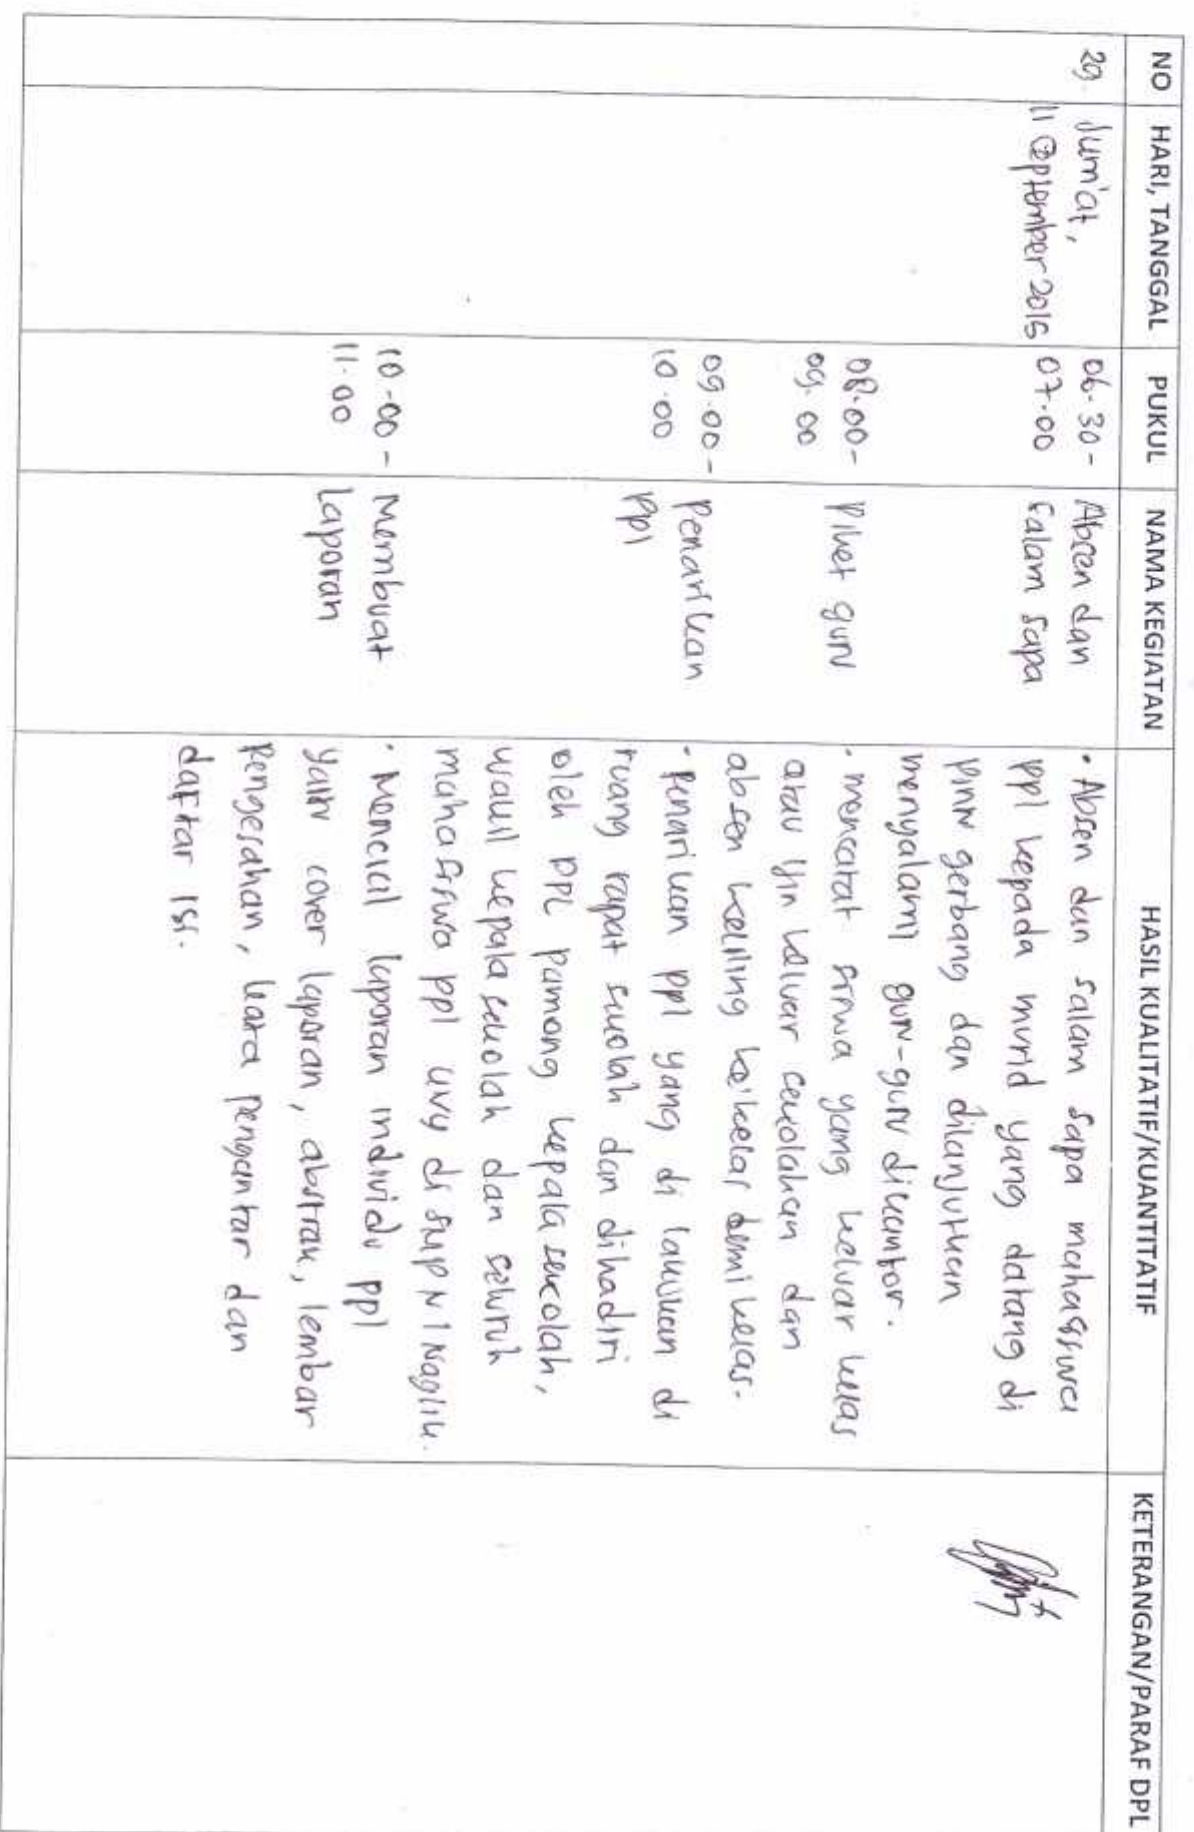 NO HARI, TANGGAL PUKUL NAMA KEGIATAN HASIL KUALITATIF/KUANTITATIF KETERANGAN/PARAF DPL
29. Jum'at,
11 September 2015
06.30 -
07.00
Absen dan
salam sapa
• Absen dan salam sapa mahasiswa
ppl kepada murid yang datang di
pintu gerbang dan dilanjutkan
menyalami guru-guru dikantor.
08.00 -
09.00
Piket guru
• mencatat siswa yang keluar kelas
atau ijin keluar sekolahan dan
absen keliling ke kelas demi kelas.
09.00 -
10.00
Penarikan
ppl
• Penarikan ppl yang di lakukan di
ruang rapat sekolah dan dihadiri
oleh DPL pamong kepala sekolah,
wakil kepala sekolah dan seluruh
mahasiswa ppl uny di SMP N 1 Naglik.
10.00 -
11.00
Membuat
Laporan
• Mencicil laporan individu ppl
yaitu cover laporan, abstrak, lembar
Pengesahan, kata pengantar dan
daftar isi.